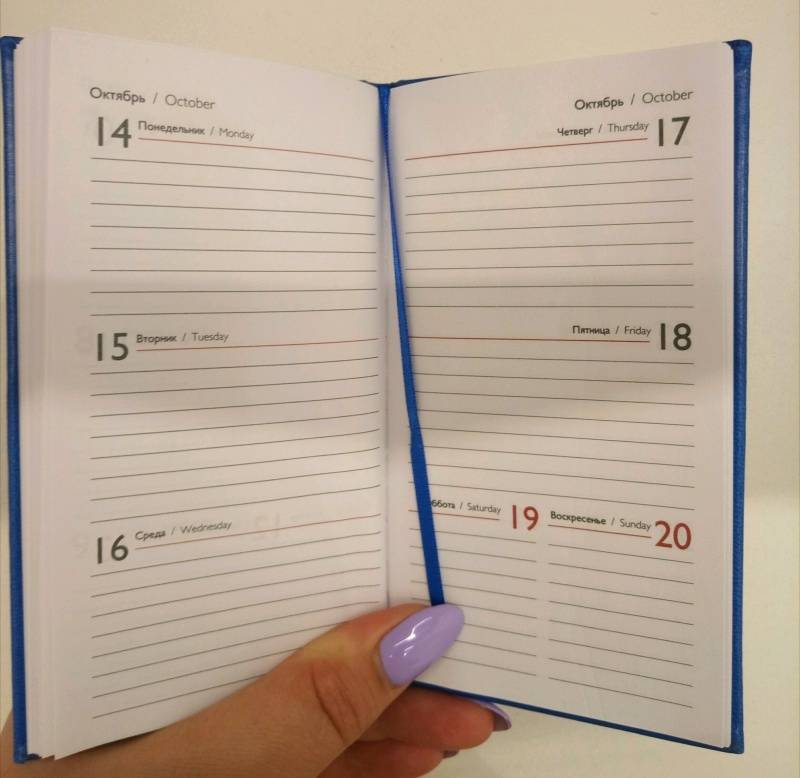 Октябрь / October
14 Понедельник / Monday
15 Вторник / Tuesday
16 Среда / Wednesday
Октябрь / October
Четверг / Thursday 17
Пятница / Friday 18
ббота / Saturday 19
Воскресенье / Sunday 20